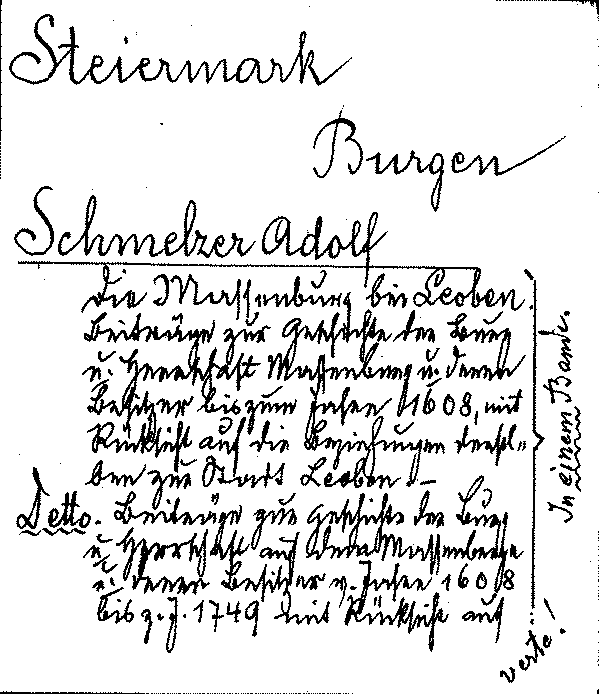 Steiermark
Burgen
Schmelzer Adolf
Die Massenburg bei Leoben.
Beiträge zur Geschichte der Burg
u. Herrschaft Massenburg u. deren
Besitzer bis zum Jahre 1608, mit
Rücksicht auf die Beziehungen dersel=
ben zur Stadt Leoben. –
Detto. Beiträge zur Geschichte der Burg
u. Herrschaft auf dem Massenberge
u. deren Besitzer v. Jahre 1608
bis z. J. 1749 mit Rücksicht auf
In einem Bande.
verte!